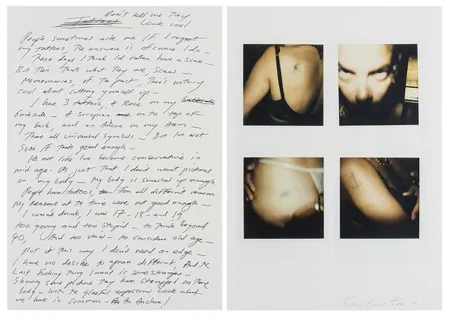 Don't tell me They
Look cool
People sometimes ask me if I regret
my tattoos, The answer is of course I do –
These days I think Id rather have a scar –
But Then Thats what They are, Scars –
memories of The fact There's nothing
cool about cutting yourself up –
I have 3 tattoos, a Rose on my
backside – A scorpion on The Top of
my back, and an Anchor on my Arm –
There all universal symbols – But Im not
Sure if Thats good enough –
Its not like Ive become conservative in
mid age – Its just That I don't want pictures
on my body – My body is smashed up enough
People have tattoos, for all different reason
my reasons at The time were not good enough –
I wasnt drunk, I was 17 - 18 - and 19
too young and too stupid – to think beyond
40, And too vain – to consider old age –
Put it this way I don't need an edge –
I have no desire to appear different, And The
Last fucking Thing I want is some stranger –
Showing some picture They have stamped on There
body – with The gleeful expression Look what
we have in common – An Anchor!